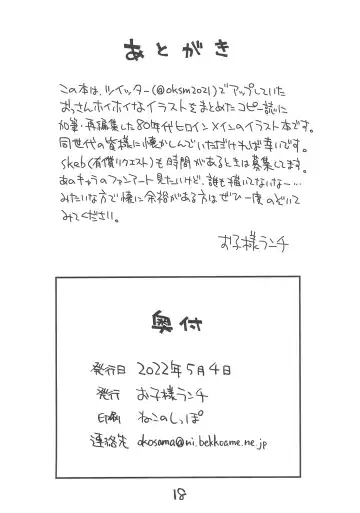 あとがき
この本は、ツイッター(@oksm2021)でアップしていた
おっさんホイホイなイラストをまとめたコピー誌に
加筆・再編集した80年代ヒロインメインのイラスト本です。
同世代の皆様に懐かしんでいただければ幸いです。
skeb(有償リクエスト)も時間があるときは募集してます。
あのキャラのファンアート見たいけど、誰も描いてないな〜…
みたいな方で懐に余裕がある方はぜひ一度のぞいて
みてください。
お子様ランチ
奥付
発行日 2022年5月4日
発行 お子様ランチ
印刷 ねこのしっぽ
連絡先 okosama@ni.bekkoame.ne.jp
18